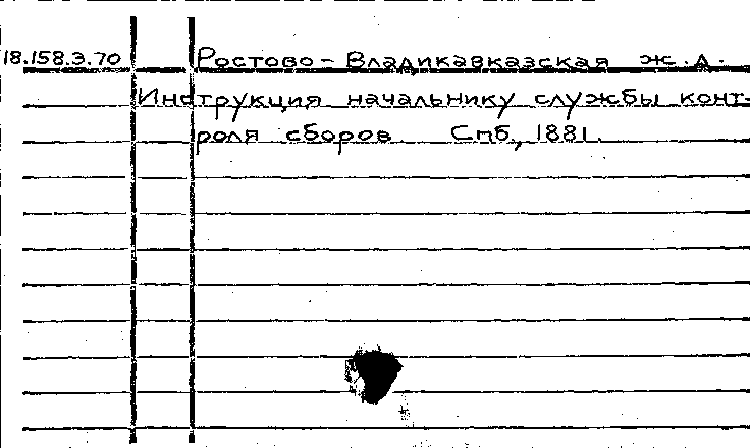 18.158.3.70 Ростово-Владикавказская ж.д.
Инструкция начальнику службы конт-
роля сборов. Спб., 1881.